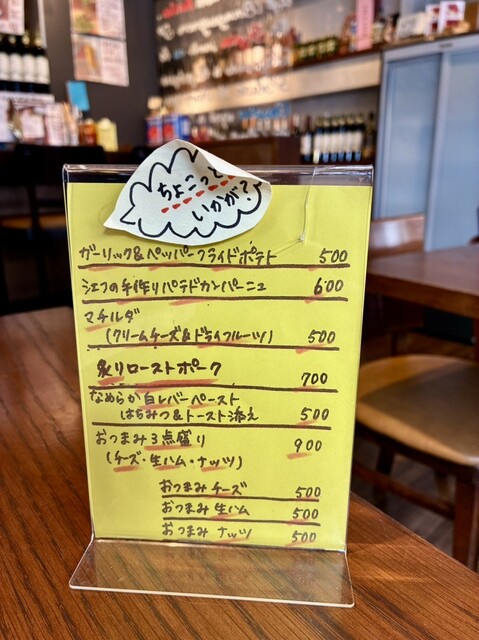 ちょこっと
いかが?
ガーリック&ペッパーフライドポテト 500
シェフの手作りパテドカンパーニュ 600
マチルダ
(クリームチーズ&ドライフルーツ) 500
炙りローストポーク 700
なめらか白レバーペースト
はちみつ&トースト添え 500
おつまみ3点盛り 900
(チーズ・生ハム・ナッツ)
おつまみチーズ 500
おつまみ生ハム 500
おつまみナッツ 500